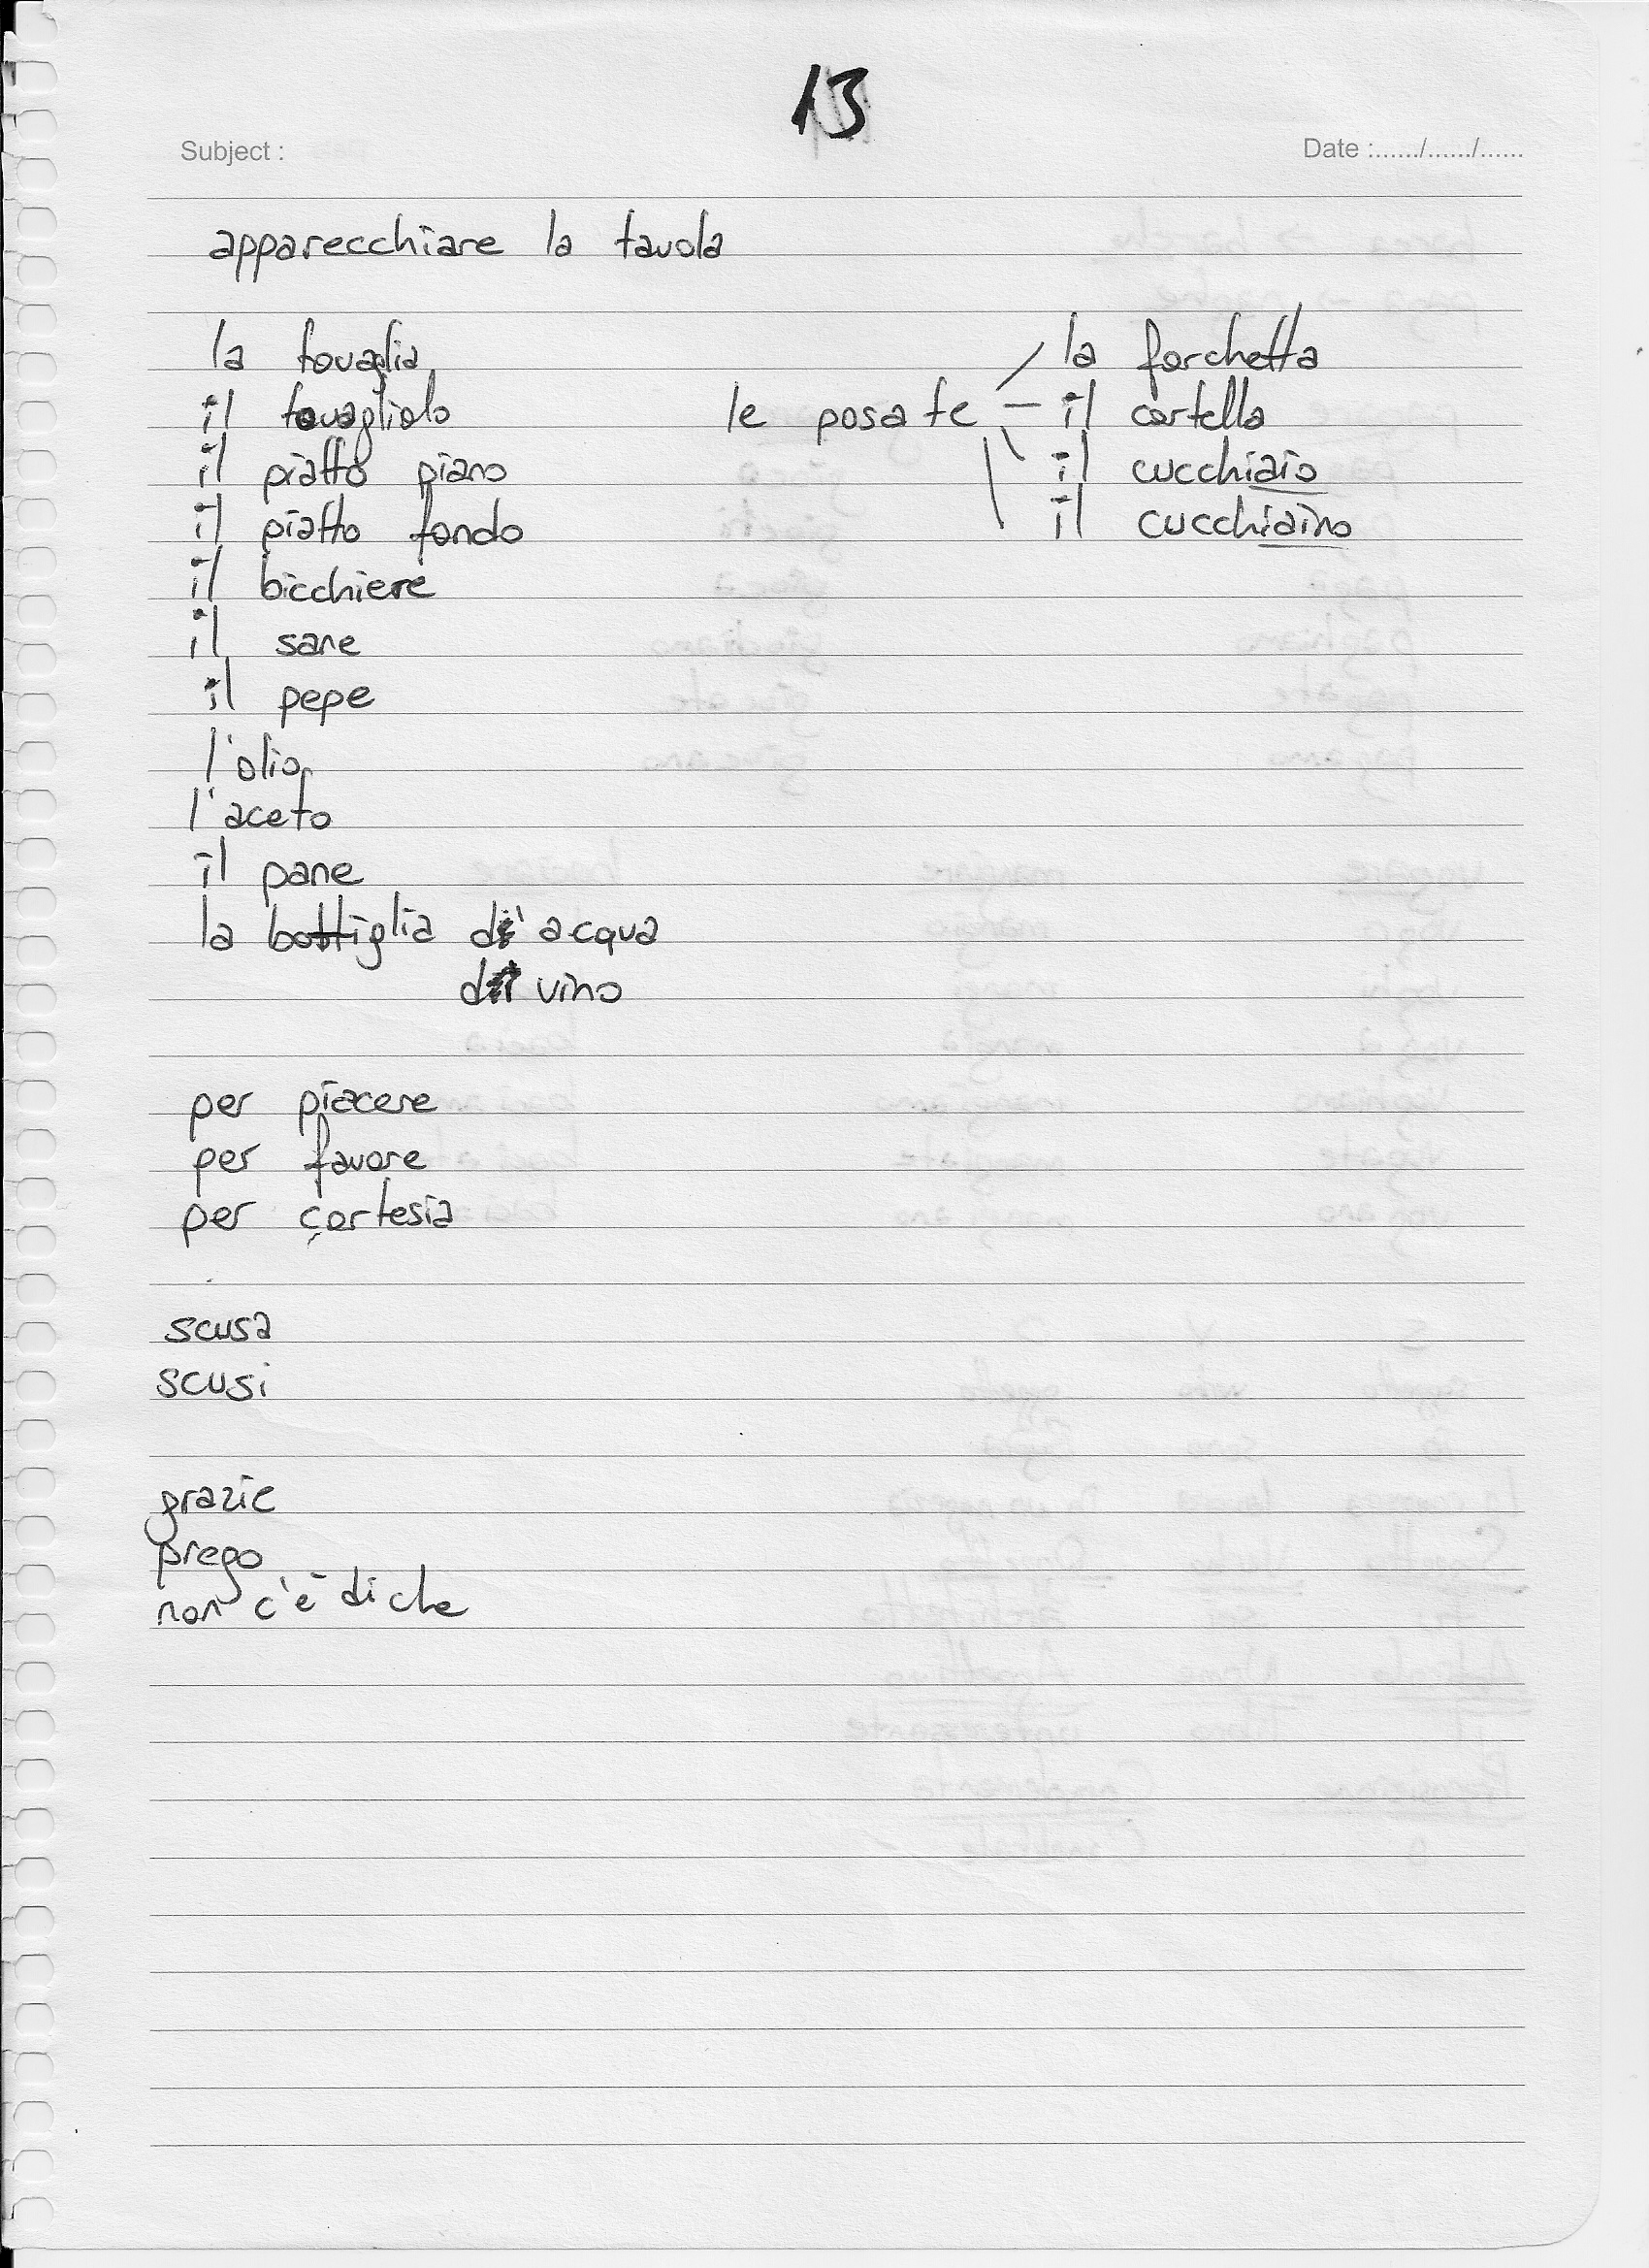 13
Subject :
Date :....../....../......
apparecchiare la tavola
la tovaglia
il tovagliolo
il piatto piano
il piatto fondo
il bicchiere
il sane
il pepe
l'olio
l'aceto
il pane
la bottiglia d'acqua
di vino
le posate
la forchetta
il cortella
il cucchiaio
il cucchiaino
per piacere
per favore
per cortesia
scusa
scusi
grazie
prego
non c'è di che